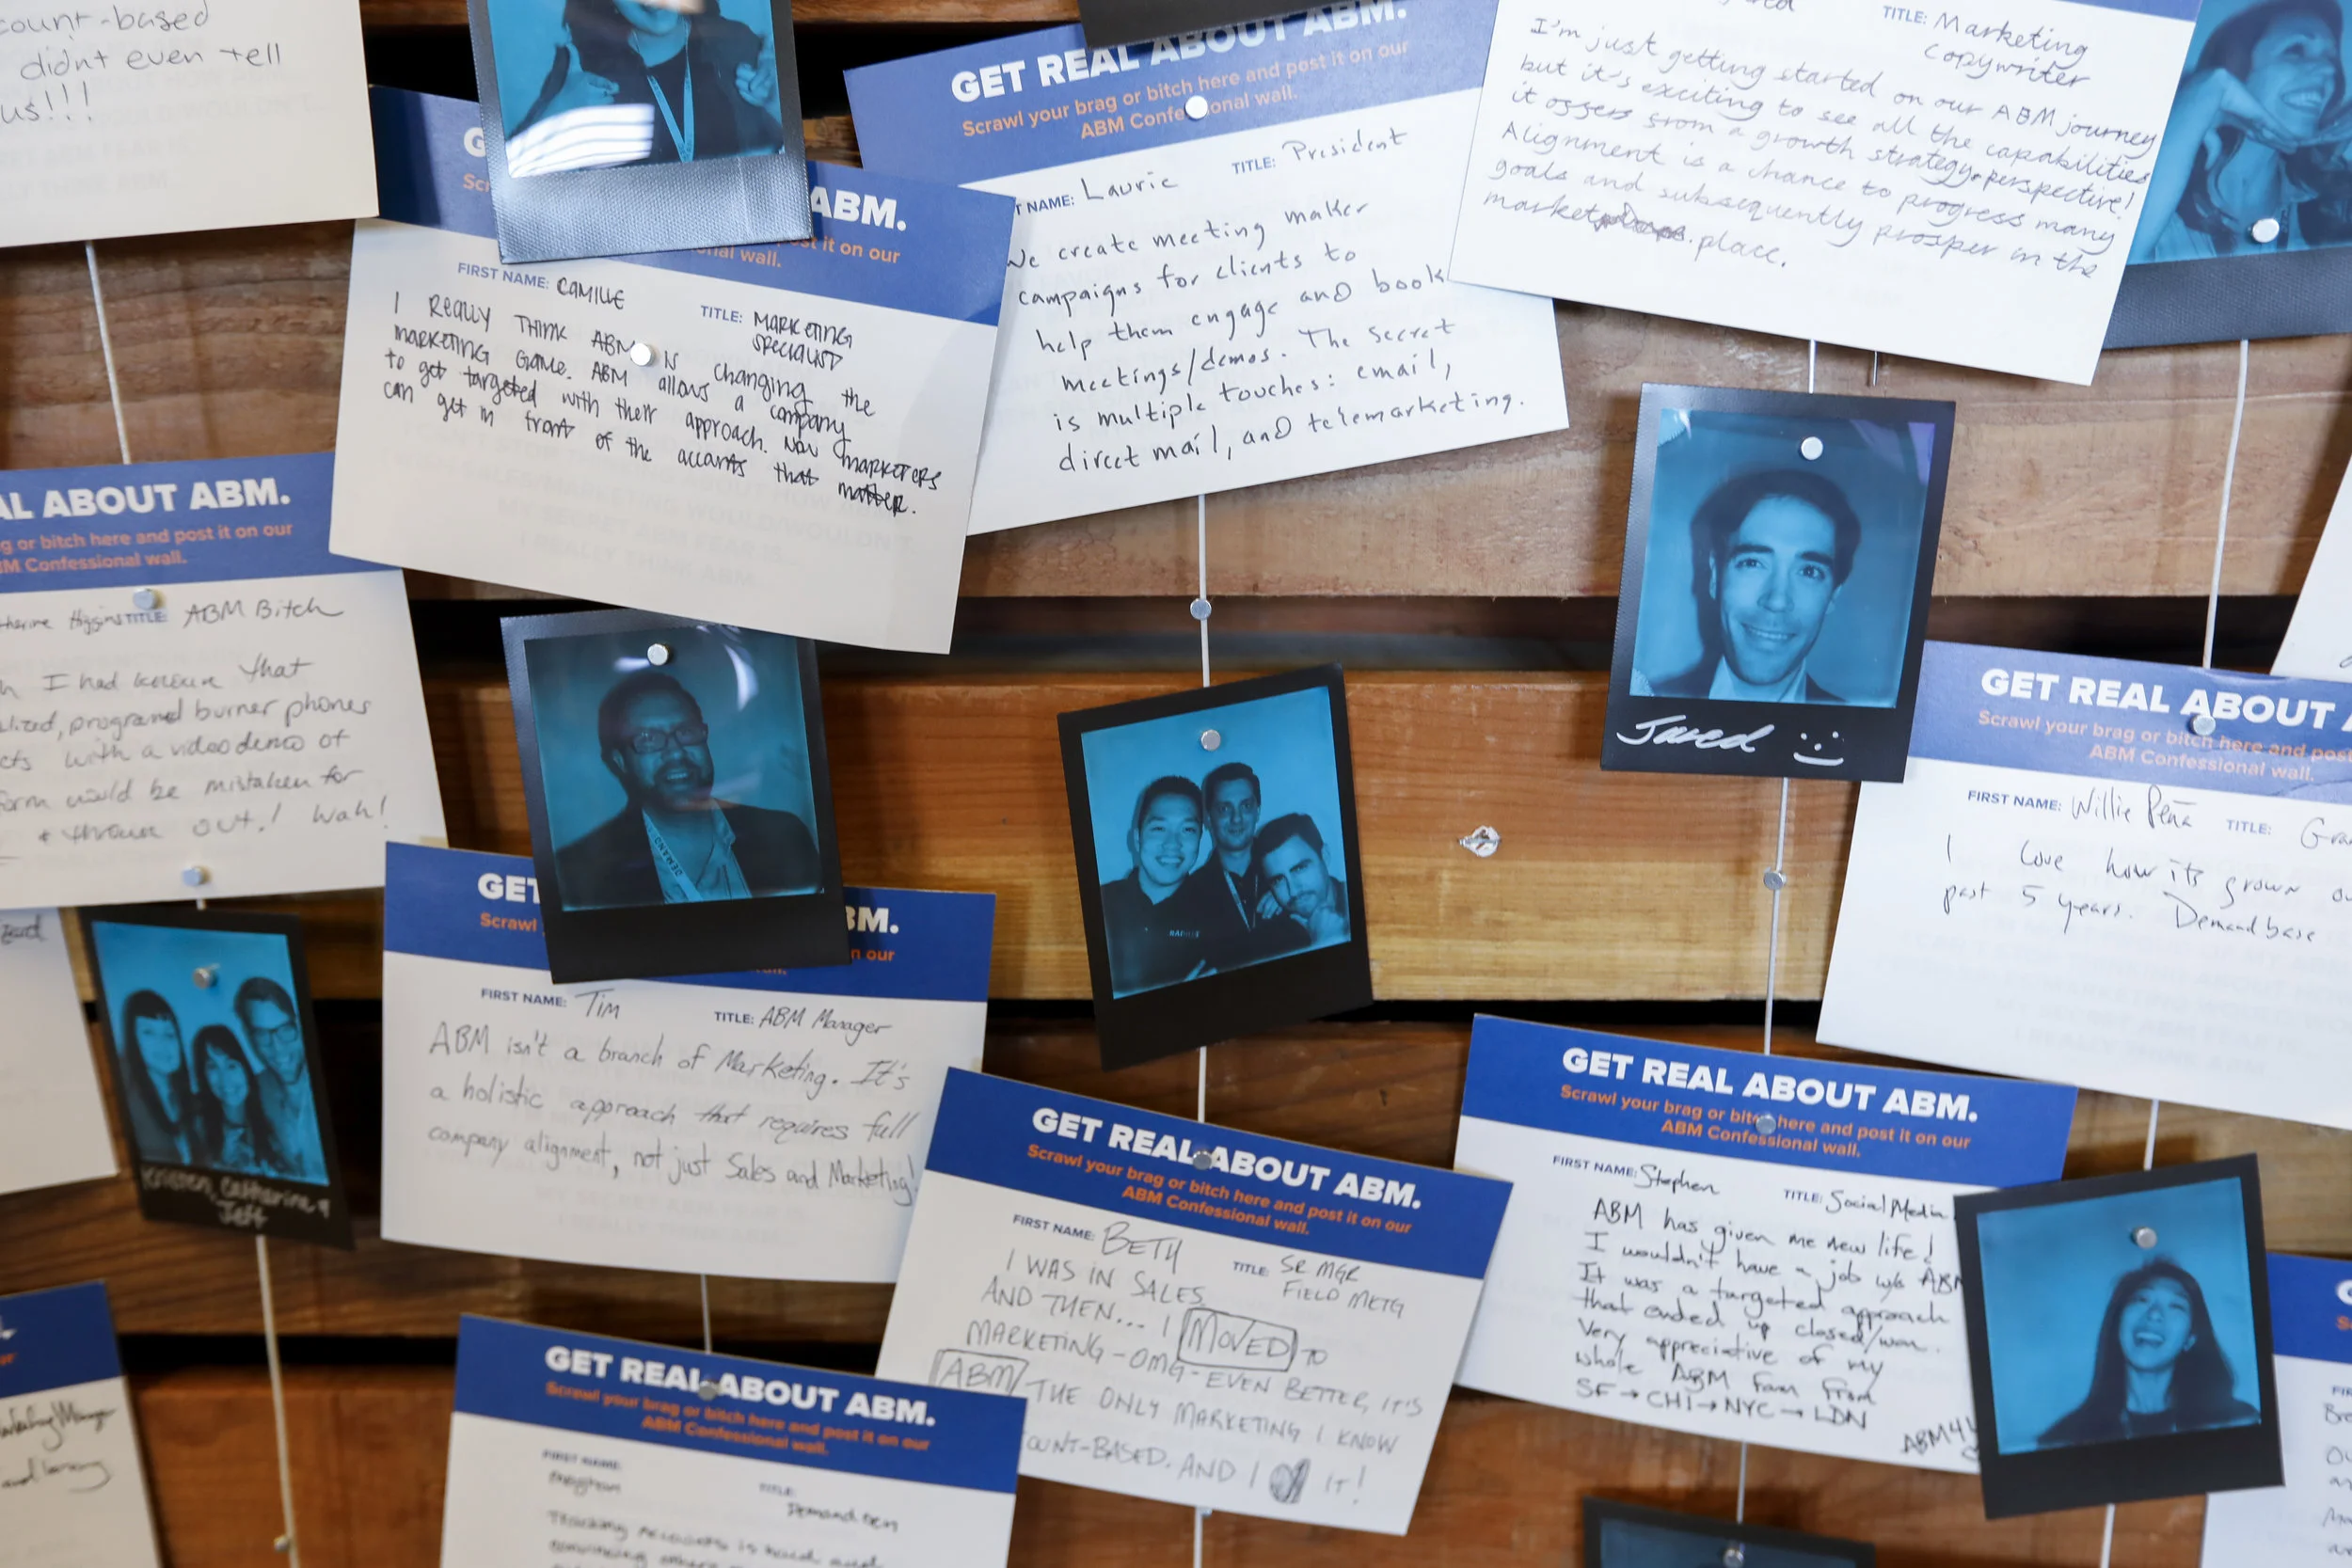 count-based
didnt even tell
us!!!
ABM.
it on our
wall.
FIRST NAME: CAMILLE
TITLE: MARKETING
SPECIALIST
I REALLY THINK ABM IS CHANGING THE
MARKETING GAME. ABM ALLOWS A COMPANY
TO GET TARGETED WITH THEIR APPROACH. NOW MARKETERS
CAN GET IN FRONT OF THE ACCOUNTS THAT MATTER.
GET REAL ABOUT ABM.
Scrawl your brag or bitch here and post it on our
ABM Confessional wall.
NAME: Laurie
TITLE: President
We create meeting maker
campaigns for clients to
help them engage and book
meetings/demos. The secret
is multiple touches: email,
direct mail, and telemarketing.
TITLE: Marketing
Copywriter
I'm just getting started on our ABM journey
but it's exciting to see all the capabilities
it offers from a growth strategy perspective!
Alignment is a chance to progress many
goals and subsequently prosper in the
market place.
AL ABOUT ABM.
or bitch here and post it on our
Confessional wall.
Higgins TITLE: ABM Bitch
I had known that
programed burner phones
with a video demo of
would be mistaken for
+ thrown out! Wah!
Kristen, Catharine &
Jeff
GET
BM.
Scrawl
n our
FIRST NAME: Tim
TITLE: ABM Manager
ABM isn't a branch of Marketing. It's
a holistic approach that requires full
company alignment, not just Sales and Marketing!
Jared
GET REAL ABOUT
Scrawl your brag or bitch here and post
ABM Confessional wall.
FIRST NAME: Willie Peña
TITLE:
I love how its grown
past 5 years. Demandbase
GET REAL ABOUT ABM.
Scrawl your brag or bitch here and post it on our
ABM Confessional wall.
FIRST NAME: BETH
TITLE: SR MGR
FIELD MKTG
I WAS IN SALES
AND THEN... I MOVED TO
MARKETING - OMG - EVEN BETTER, IT'S
ABM THE ONLY MARKETING I KNOW
OUNT-BASED. AND I IT!
GET REAL ABOUT ABM.
Scrawl your brag or bitch here and post it on our
ABM Confessional wall.
FIRST NAME: Stephen
TITLE: Social Media
ABM has given me new life!
I wouldn't have a job w/o ABM
It was a targeted approach
that ended up closed/won.
Very appreciative of my
whole ABM fam from
SF → CHI → NYC → LDN
ABM4
GET REAL ABOUT ABM.
Scrawl your brag or bitch here and post it on our
ABM Confessional wall.
FIRST NAME:
TITLE:
Demand Gen